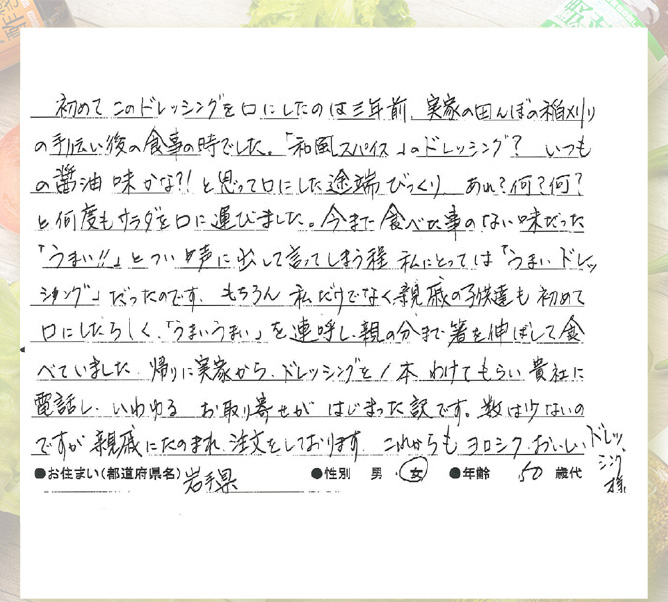 初めてこのドレッシングを口にしたのは三年前、実家の田んぼの稲刈り
の手伝い後の食事の時でした。「和風スパイス」のドレッシング？ いつも
の醤油味かな?! と思って口にした途端びっくり あれ？何？何？
と何度もサラダを口に運びました。今まで食べた事のない味だった
「うまい!!」とつい声に出して言ってしまう程 私にとっては「うまいドレッ
シング」だったのです。もちろん 私だけでなく親戚の子供達も初めて
口にしたらしく、「うまいうまい」を連呼し、親の分まで箸を伸ばして食
べていました 帰りに実家から、ドレッシングを1本わけてもらい貴社に
電話し、いわゆる お取り寄せが はじまった訳です。数は少ないの
ですが親戚にたのまれ、注文をしております これからもヨロシク、おいしいドレッ
シング
様
●お住まい(都道府県名) 岩手県 ●性別 男・女 ●年齢 50 歳代